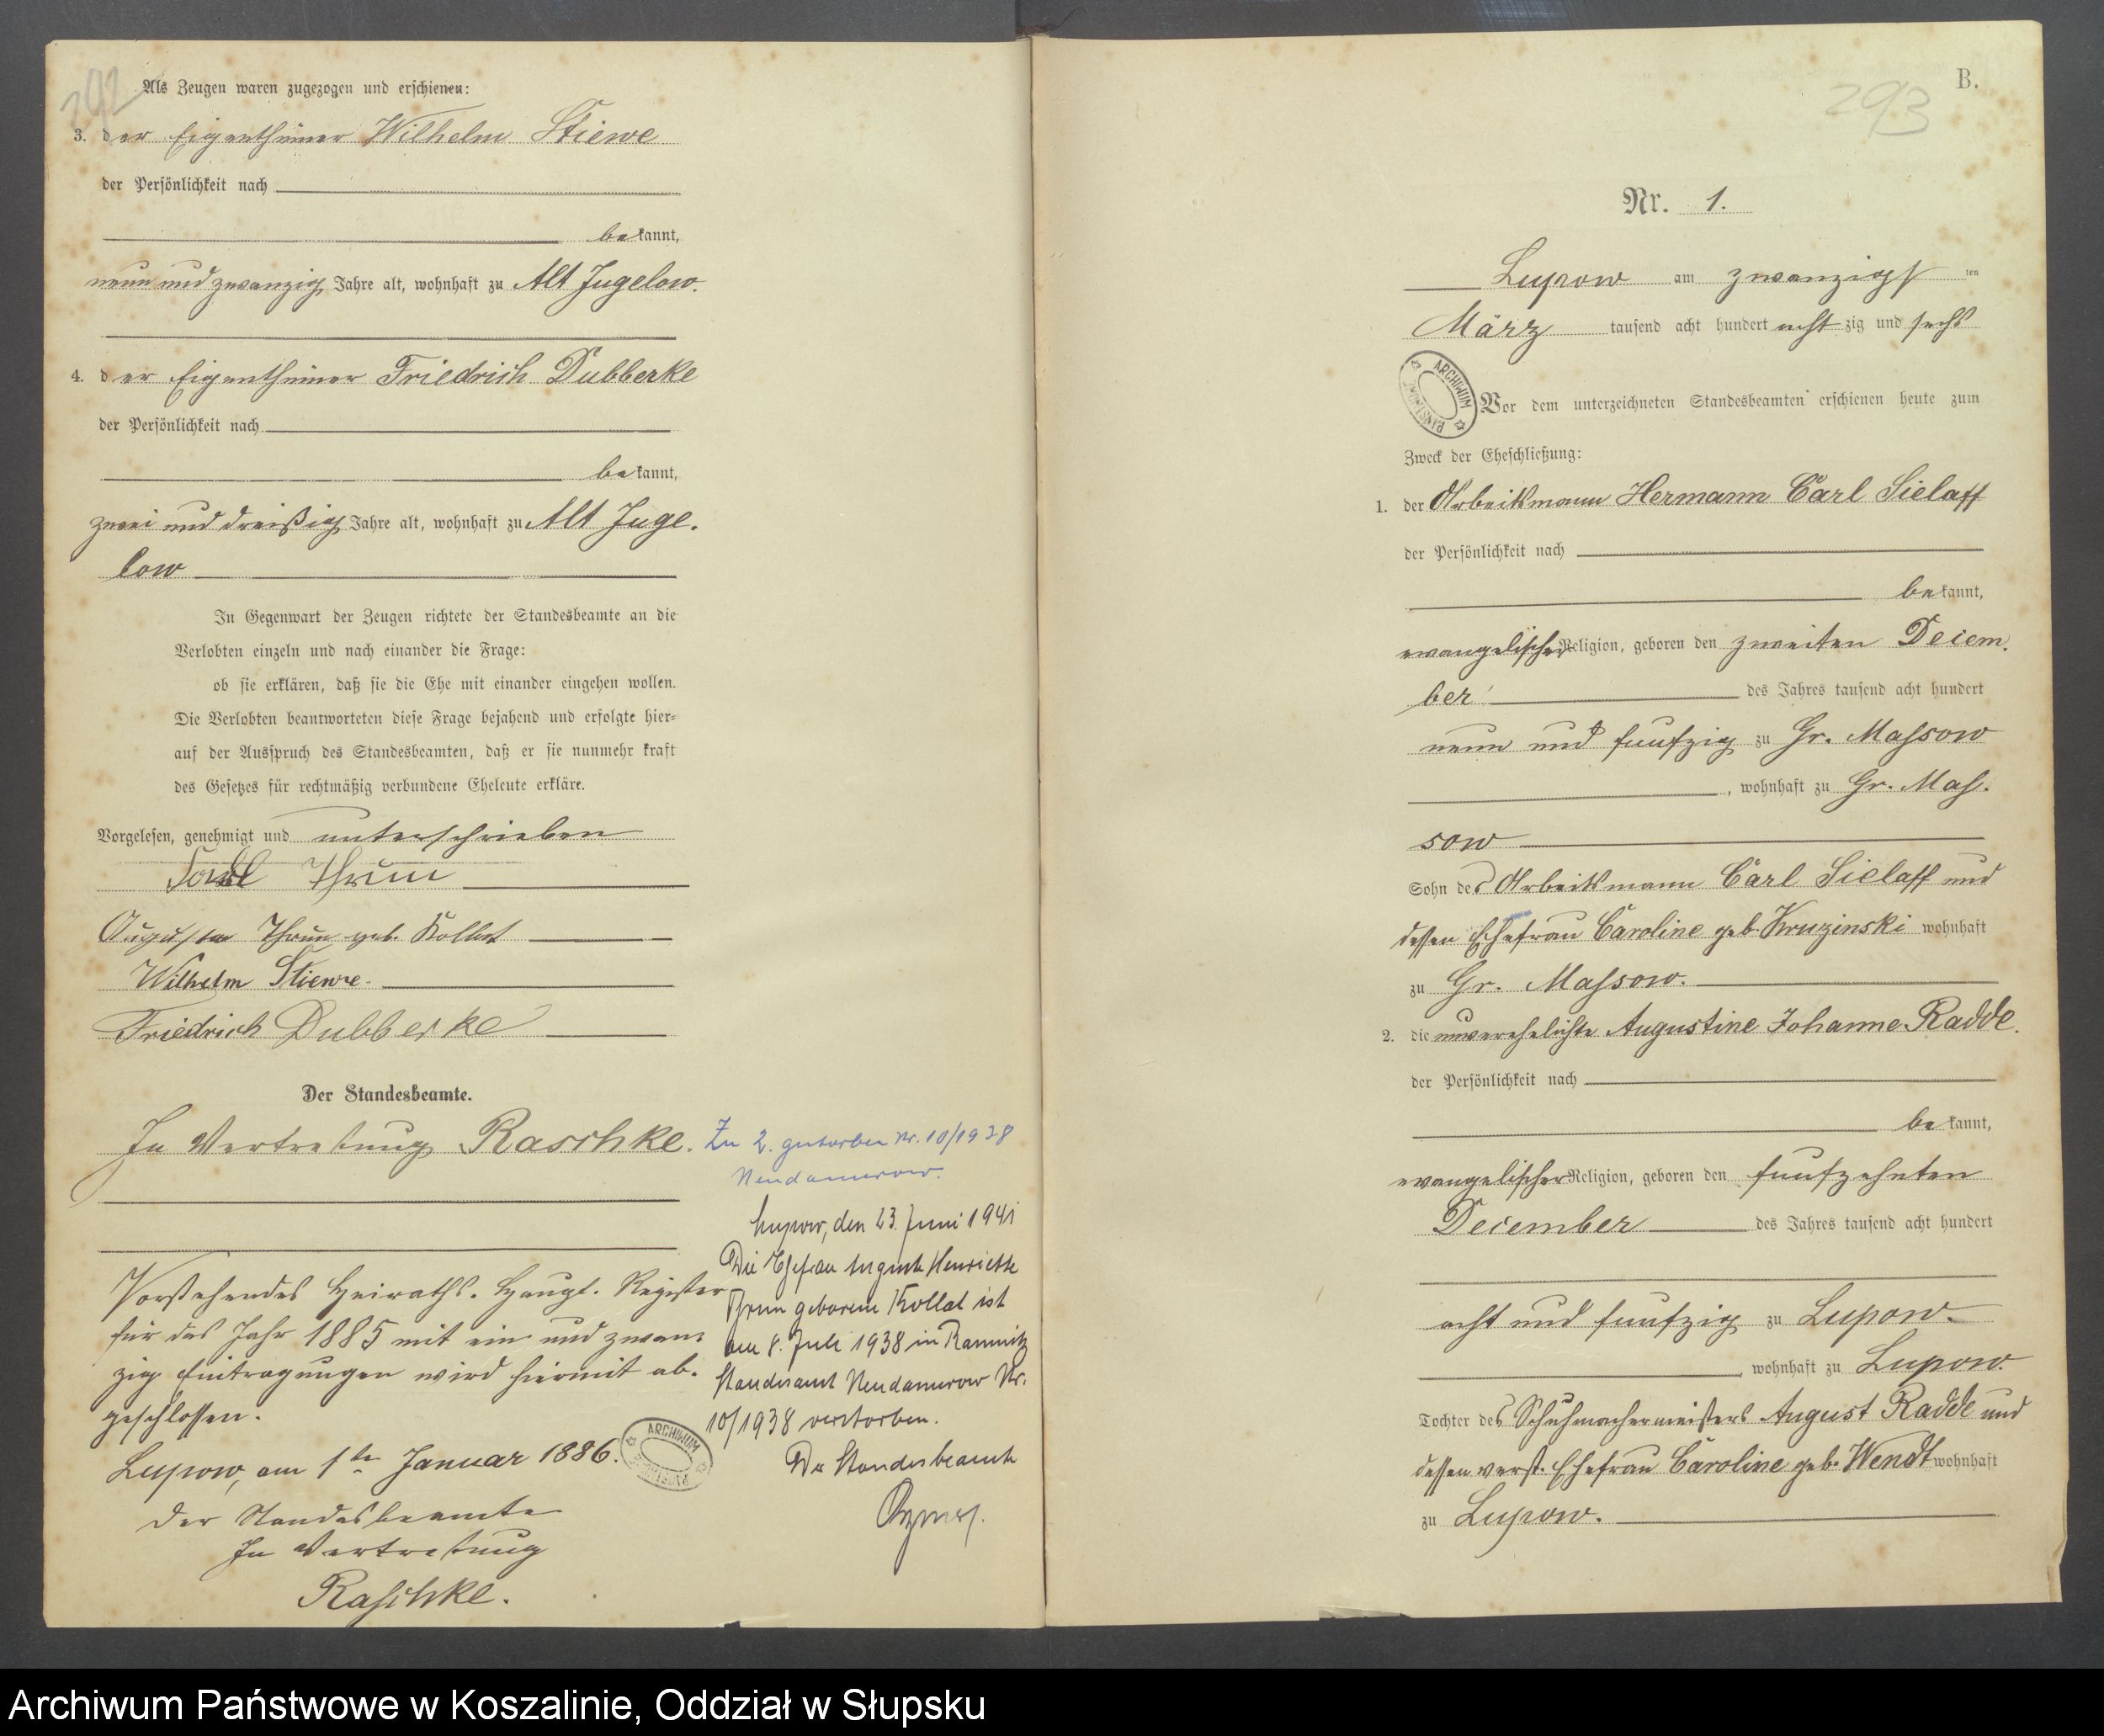 292
Als Zeugen waren zugezogen und erschienen:
3. der Eigenthümer Wilhelm Stiewe
der Persönlichkeit nach
bekannt,
neun und zwanzig Jahre alt, wohnhaft zu Alt Jugelow.
4. der Eigenthümer Friedrich Dubberke
der Persönlichkeit nach
bekannt,
zwei und dreißig Jahre alt, wohnhaft zu Alt Juge-
low
In Gegenwart der Zeugen richtete der Standesbeamte an die
Verlobten einzeln und nach einander die Frage:
ob sie erklären, daß sie die Ehe mit einander eingehen wollen.
Die Verlobten beantworteten diese Frage bejahend und erfolgte hier-
auf der Ausspruch des Standesbeamten, daß er sie nunmehr kraft
des Gesetzes für rechtmäßig verbundene Eheleute erkläre.
Vorgelesen, genehmigt und unterschrieben
Thrun
Auguste Thrun geb. Kollat
Wilhelm Stiewe.
Friedrich Dubberke
Der Standesbeamte.
In Vertretung Raschke.
Vorstehendes Heiraths-Haupt-Register
für das Jahr 1885 mit ein und zwan-
zig Eintragungen wird hiermit ab-
geschlossen.
Lupow, am 1ten Januar 1886.
Der Standesbeamte
In Vertretung
Raschke.
ARCHIWUM
Zu 2. gestorben Nr. 10/1938
Neudamerow.
Lupow, den 23. Juni 1941
Die Ehefrau Auguste Henriette
Thrun geborene Kollat ist
am 8. Juli 1938 in Ramnitz
Standesamt Neudamerow Nr.
10/1938 verstorben.
Der Standesbeamte
B.
293
Nr. 1.
Lupow am zwanzigsten
März tausend acht hundert achtzig und sechs
ARCHIWUM PAŃSTWOWE
Vor dem unterzeichneten Standesbeamten erschienen heute zum
Zweck der Eheschließung:
1. der Arbeitsmann Hermann Carl Sielaff
der Persönlichkeit nach
bekannt,
evangelischer Religion, geboren den zweiten Decem-
ber des Jahres tausend acht hundert
neun und funfzig zu Gr. Massow
, wohnhaft zu Gr. Mas-
sow
Sohn des Arbeitsmann Carl Sielaff und
dessen Ehefrau Caroline geb. Kruzinski wohnhaft
zu Gr. Massow.
2. die unverehelichte Augustine Johanne Radde.
der Persönlichkeit nach
bekannt,
evangelischer Religion, geboren den funfzehnten
December des Jahres tausend acht hundert
acht und funfzig zu Lupow.
, wohnhaft zu Lupow.
Tochter des Schuhmachermeisters August Radde und
dessen verst. Ehefrau Caroline geb. Wendt wohnhaft
zu Lupow.
Archiwum Państwowe w Koszalinie, Oddział w Słupsku